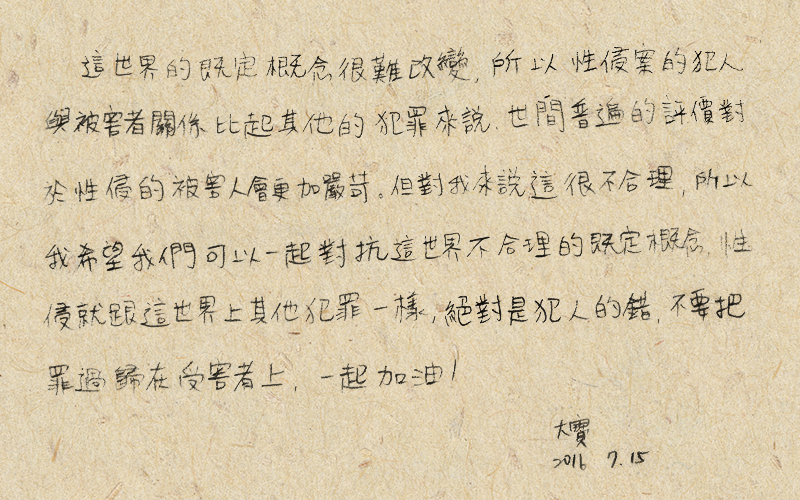 這世界的既定概念很難改變，所以性侵案的犯人
與被害者關係比起其他的犯罪來說，世間普遍的評價對
於性侵的被害人會更加嚴苛。但對我來說這很不合理，所以
我希望我們可以一起對抗這世界不合理的既定概念，性
侵就跟這世界上其他犯罪一樣，絕對是犯人的錯，不要把
罪過歸在受害者上，一起加油！
大寶
2016 7.15